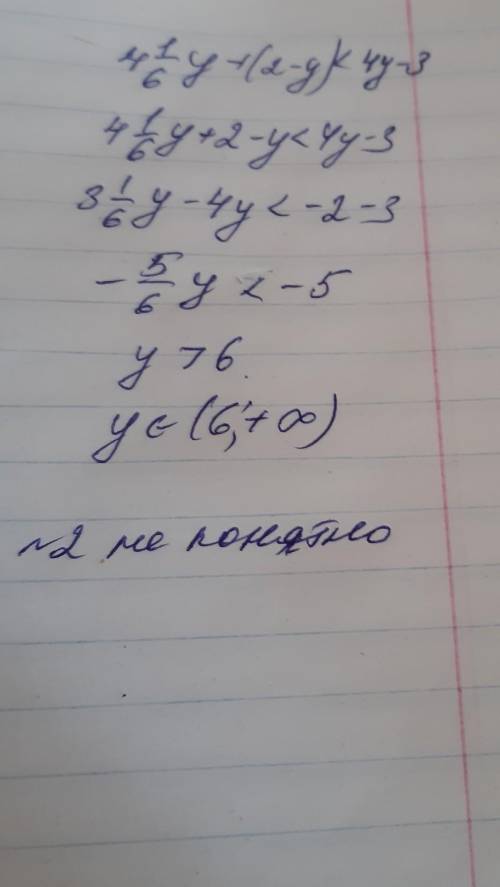 4 1/6 y + (2-y) < 4y-3
4 1/6 y + 2 - y < 4y - 3
3 1/6 y - 4y < -2 - 3
- 5/6 y < - 5
y > 6
y ∈ (6; + ∞)
№2 не понятно